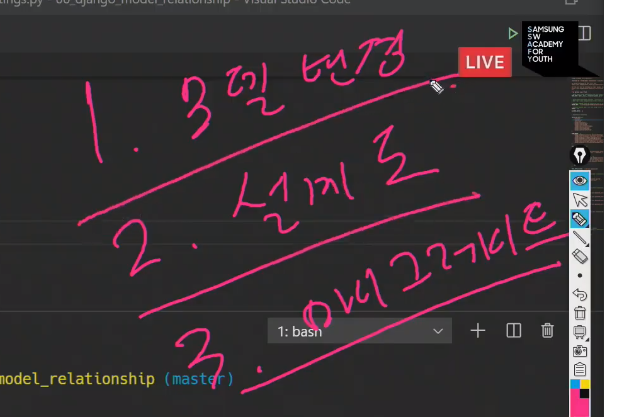 tings.py - 06_django_model_relationship - Visual Studio Code
SAMSUNG
SW
ACADEMY
FOR
YOUTH
LIVE
1. 모델 변경
2. 설계도
3. 마이그레이션
1: bash
model_relationship (master)